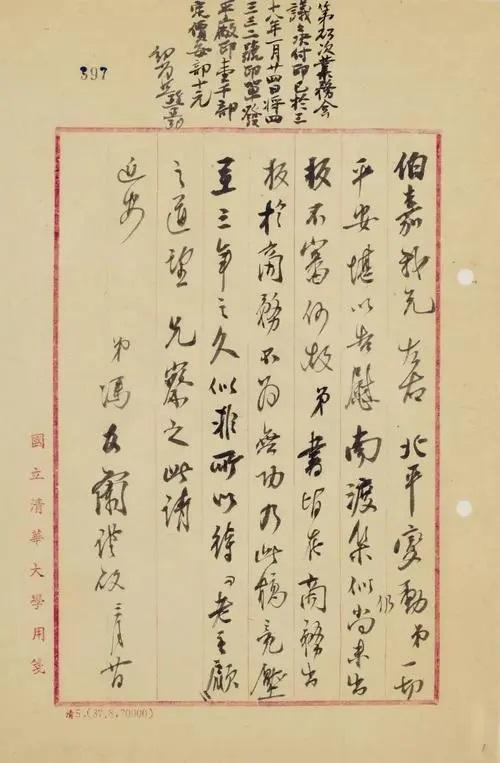 397
第次業務會
議議決付印已於三
十八年一月廿四日將四
三三二號印單發
平廠印壹千部
定價每部十元
伯嘉我兄左右北平變動弟仍一切
平安堪以告慰南渡集似尚未出
板不審何故弟書皆在商務出
板於商務不為無功乃此稿竟壓
至三年之久似非所以待「老主顧」
之道望兄察之此請
近安
弟馮友蘭謹啟 三月廿
國立清華大學用箋
清5.(37.8.70000)